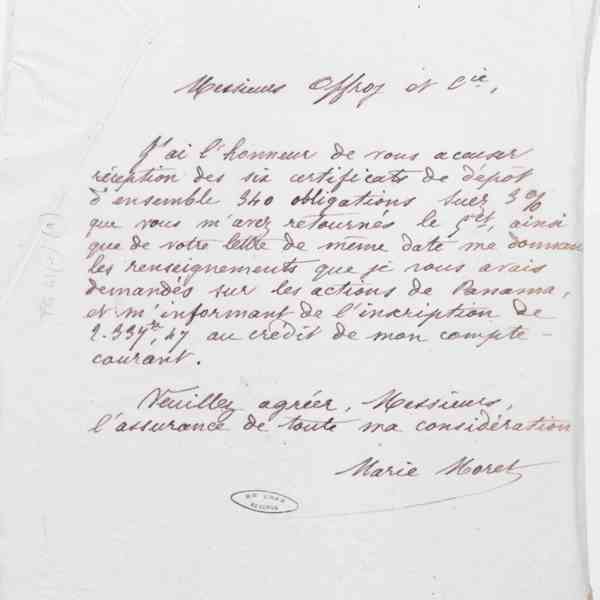 Messieurs Offroy et Cie,
J'ai l'honneur de vous accuser
réception des six certificats de dépôt
d'ensemble 340 obligations Suez 3%
que vous m'avez retournés le 5 ct, ainsi
que de votre lettre de même date me donnant
les renseignements que je vous avais
demandés sur les actions de Panama,
et m'informant de l'inscription de
2.337 fr, 47 au crédit de mon compte-
courant.
Veuillez agréer, Messieurs,
l'assurance de toute ma considération
Marie Moret